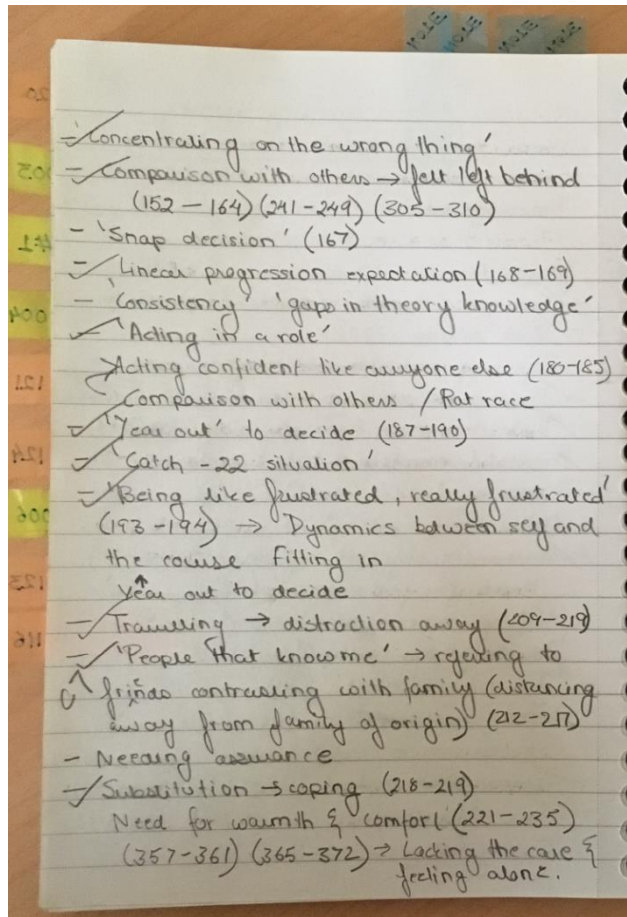 NOTE NOTE NOTE NOTE
- 'Concentrating on the wrong thing'
- Comparison with others → felt left behind
(152 – 164) (241 – 249) (305 – 310)
- 'Snap decision' (167)
- Linear progression expectation (168-169)
- 'Consistency' 'gaps in theory knowledge'
- 'Acting in a role'
Acting confident like anyone else (180-185)
Comparison with others / Rat race
- 'Year out' to decide (187-190)
- 'Catch - 22 situation'
- 'Being like frustrated, really frustrated'
(193 – 194) → Dynamics between self and
the course fitting in
year out to decide
- Travelling → distraction away (209-219)
- 'People that know me' → referring to
friends contrasting with family (distancing
away from family of origin) (212-217)
- Needing assurance
- Substitution → coping (218-219)
Need for warmth & comfort (221-235)
(357-361) (365-372) → Lacking the care &
feeling alone.
003
004
121
124
006
123
116